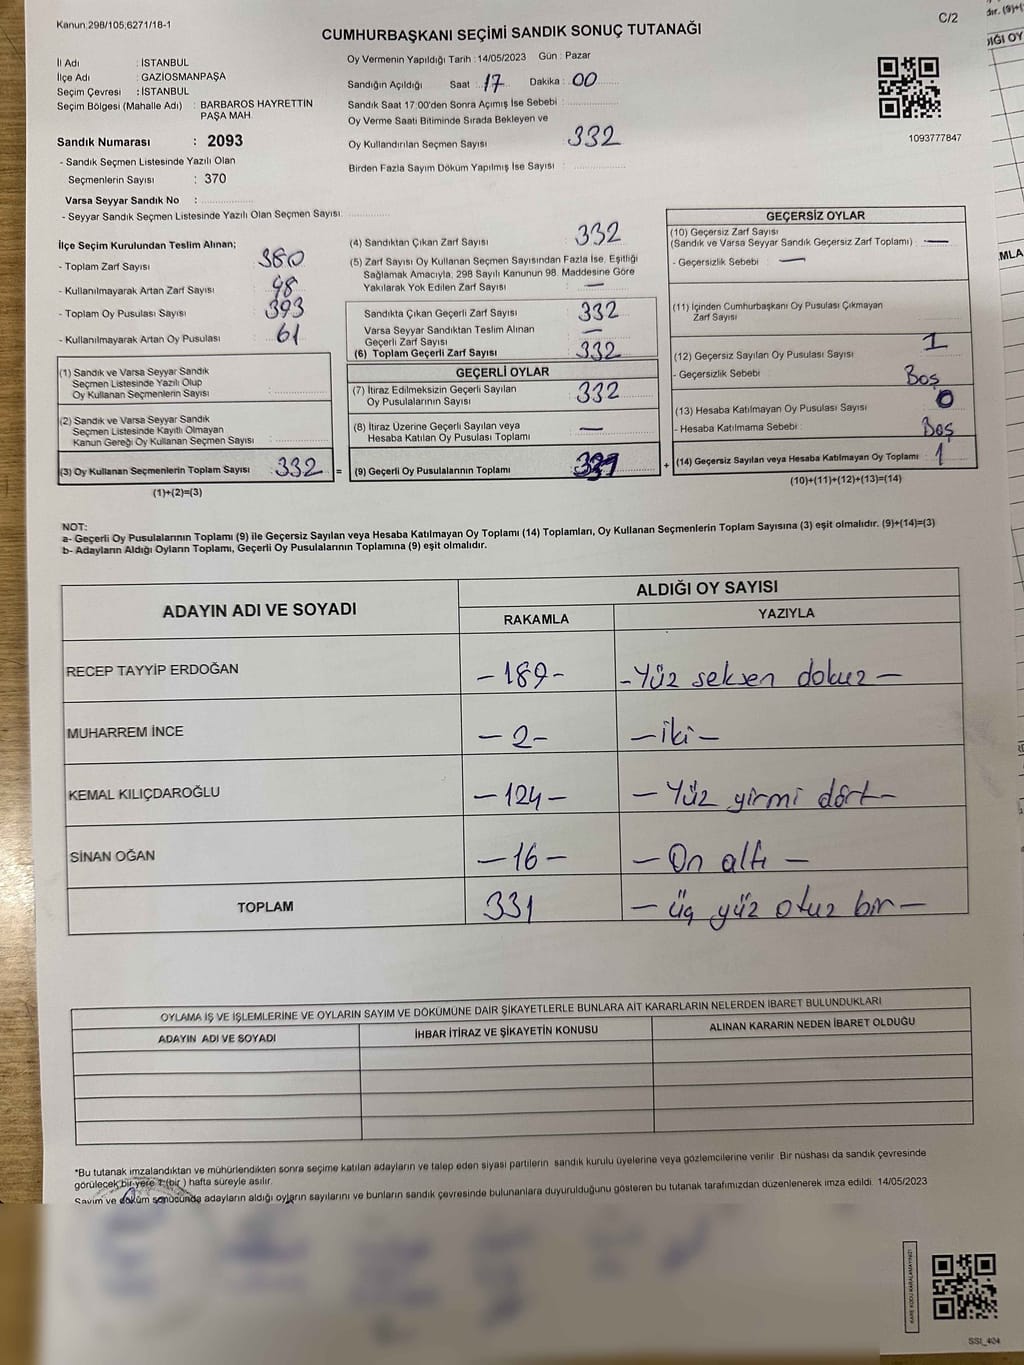 Kanun;298/105;6271/18-1
C/2
CUMHURBAŞKANI SEÇİMİ SANDIK SONUÇ TUTANAĞI
İl Adı : İSTANBUL
İlçe Adı : GAZİOSMANPAŞA
Seçim Çevresi : İSTANBUL
Seçim Bölgesi (Mahalle Adı) : BARBAROS HAYRETTİN
PAŞA MAH.
Sandık Numarası : 2093
- Sandık Seçmen Listesinde Yazılı Olan
Seçmenlerin Sayısı : 370
Varsa Seyyar Sandık No :
- Seyyar Sandık Seçmen Listesinde Yazılı Olan Seçmen Sayısı:
Oy Vermenin Yapıldığı Tarih : 14/05/2023 Gün : Pazar
Sandığın Açıldığı Saat : 17 Dakika : 00
Sandık Saat 17:00'den Sonra Açımış İse Sebebi :
Oy Verme Saati Bitiminde Sırada Bekleyen ve
Oy Kullandırılan Seçmen Sayısı 332
Birden Fazla Sayım Döküm Yapılmış İse Sayısı :
1093777847
İlçe Seçim Kurulundan Teslim Alınan;
- Toplam Zarf Sayısı 380
- Kullanılmayarak Artan Zarf Sayısı 48
- Toplam Oy Pusulası Sayısı 393
- Kullanılmayarak Artan Oy Pusulası 61
(1) Sandık ve Varsa Seyyar Sandık
Seçmen Listesinde Yazılı Olup
Oy Kullanan Seçmenlerin Sayısı :
(2) Sandık ve Varsa Seyyar Sandık
Seçmen Listesinde Kayıtlı Olmayan
Kanun Gereği Oy Kullanan Seçmen Sayısı :
(3) Oy Kullanan Seçmenlerin Toplam Sayısı : 332 =
(1)+(2)=(3)
(4) Sandıktan Çıkan Zarf Sayısı 332
(5) Zarf Sayısı Oy Kullanan Seçmen Sayısından Fazla İse, Eşitliği
Sağlamak Amacıyla, 298 Sayılı Kanunun 98. Maddesine Göre
Yakılarak Yok Edilen Zarf Sayısı : —
Sandıkta Çıkan Geçerli Zarf Sayısı : 332
Varsa Seyyar Sandıktan Teslim Alınan
Geçerli Zarf Sayısı : —
(6) Toplam Geçerli Zarf Sayısı : 332
GEÇERLİ OYLAR
(7) İtiraz Edilmeksizin Geçerli Sayılan
Oy Pusulalarının Sayısı : 332
(8) İtiraz Üzerine Geçerli Sayılan veya
Hesaba Katılan Oy Pusulası Toplamı : —
(9) Geçerli Oy Pusulalarının Toplamı +
GEÇERSİZ OYLAR
(10) Geçersiz Zarf Sayısı
(Sandık ve Varsa Seyyar Sandık Geçersiz Zarf Toplamı) : —
- Geçersizlik Sebebi : —
(11) İçinden Cumhurbaşkanı Oy Pusulası Çıkmayan
Zarf Sayısı
(12) Geçersiz Sayılan Oy Pusulası Sayısı : 1
- Geçersizlik Sebebi : Boş
(13) Hesaba Katılmayan Oy Pusulası Sayısı : 0
- Hesaba Katılmama Sebebi : Boş
(14) Geçersiz Sayılan veya Hesaba Katılmayan Oy Toplamı : 1
(10)+(11)+(12)+(13)=(14)
NOT:
a- Geçerli Oy Pusulalarının Toplamı (9) ile Geçersiz Sayılan veya Hesaba Katılmayan Oy Toplamı (14) Toplamları, Oy Kullanan Seçmenlerin Toplam Sayısına (3) eşit olmalıdır. (9)+(14)=(3)
b- Adayların Aldığı Oyların Toplamı, Geçerli Oy Pusulalarının Toplamına (9) eşit olmalıdır.
ADAYIN ADI VE SOYADI
ALDIĞI OY SAYISI
RAKAMLA YAZIYLA
RECEP TAYYİP ERDOĞAN -189- -Yüz seksen dokuz-
MUHARREM İNCE -2- -iki-
KEMAL KILIÇDAROĞLU -124- -Yüz yirmi dört-
SİNAN OĞAN -16- -On altı-
TOPLAM 331 -üç yüz otuz bir-
OYLAMA İŞ VE İŞLEMLERİNE VE OYLARIN SAYIM VE DÖKÜMÜNE DAİR ŞİKAYETLERLE BUNLARA AİT KARARLARIN NELERDEN İBARET BULUNDUKLARI
ADAYIN ADI VE SOYADI İHBAR İTİRAZ VE ŞİKAYETİN KONUSU ALINAN KARARIN NEDEN İBARET OLDUĞU
*Bu tutanak imzalandıktan ve mühürlendikten sonra seçime katılan adayların ve talep eden siyasi partilerin sandık kurulu üyelerine veya gözlemcilerine verilir. Bir nüshası da sandık çevresinde
görülecek bir yere 1 (bir) hafta süreyle asılır.
Sayım ve döküm sonucunda adayların aldığı oyların sayılarını ve bunların sandık çevresinde bulunanlara duyurulduğunu gösteren bu tutanak tarafımızdan düzenlenerek imza edildi. 14/05/2023
KARE KODU KARALAMAYINIZ!
SSI_404